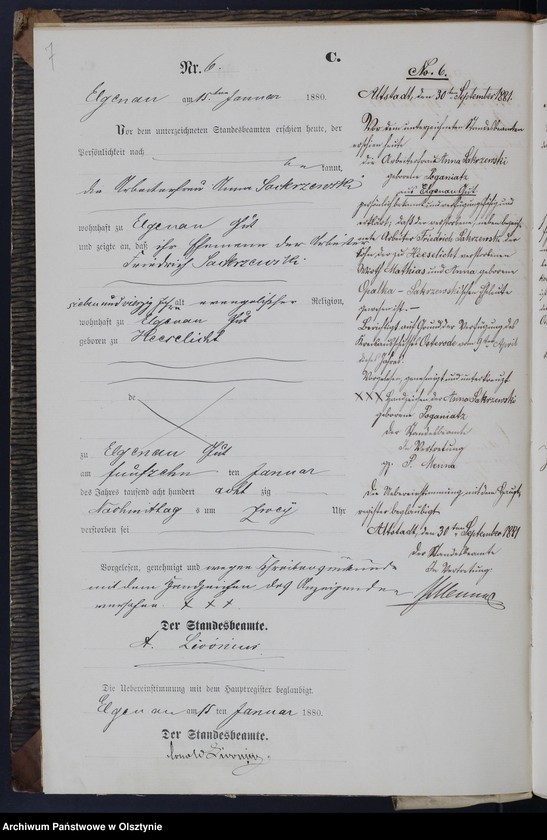 7
C.
Nr. 6.
Elgenau am 15ten Januar 1880.
Vor dem unterzeichneten Standesbeamten erschien heute, der
Persönlichkeit nach
kannt,
die Arbeiterfrau Anna Sackrzewski
wohnhaft zu Elgenau Gut
und zeigte an, daß ihr Ehemann der Arbeiter
Friedrich Sackrzewski
sieben und vierzig Jahre alt evangelischer Religion,
wohnhaft zu Elgenau Gut
geboren zu Heeselicht
de
zu Elgenau Gut
am fünfzehn ten Januar
des Jahres tausend acht hundert acht zig
Nachmittag s um zwey Uhr
verstorben sei
Vorgelesen, genehmigt und wegen Schreibensunkunde
mit dem Handzeichen des Anzeigenden
versehen + + +
Der Standesbeamte.
A. Livonius
Die Uebereinstimmung mit dem Hauptregister beglaubigt.
Elgenau am 15 ten Januar 1880.
Der Standesbeamte.
Livonius
No. 6.
Altstadt, den 30ten September 1881.
Vor dem unterzeichneten Standesbeamten
erschien heute
die Arbeiterfrau Anna Sakrzewski
geborene Poganiatz
aus Elgenau Gut
persönlich bekannt und
erklärt, daß der verstorbene
Arbeiter Friedrich Sakrzewski der
Sohn der zu Heeselicht verstorbenen
Mathias und Anna geborene
Opalka - Sakrzewskischen Eheleute
gewesen ist. -
Berichtigt auf Grund der Verfügung des
Kreisausschusses Osterode vom 9ten April
dieses Jahres.
Vorgelesen, genehmigt und unterkreuzt
XXX Handzeichen der Anna Sakrzewski
geborene Poganiatz
Der Standesbeamte
In Vertretung
gz. P. Menna
Die Uebereinstimmung mit dem Haupt-
register beglaubigt
Altstadt, den 30ten September 1881
Der Standesbeamte
In Vertretung
Menna
Archiwum Państwowe w Olsztynie